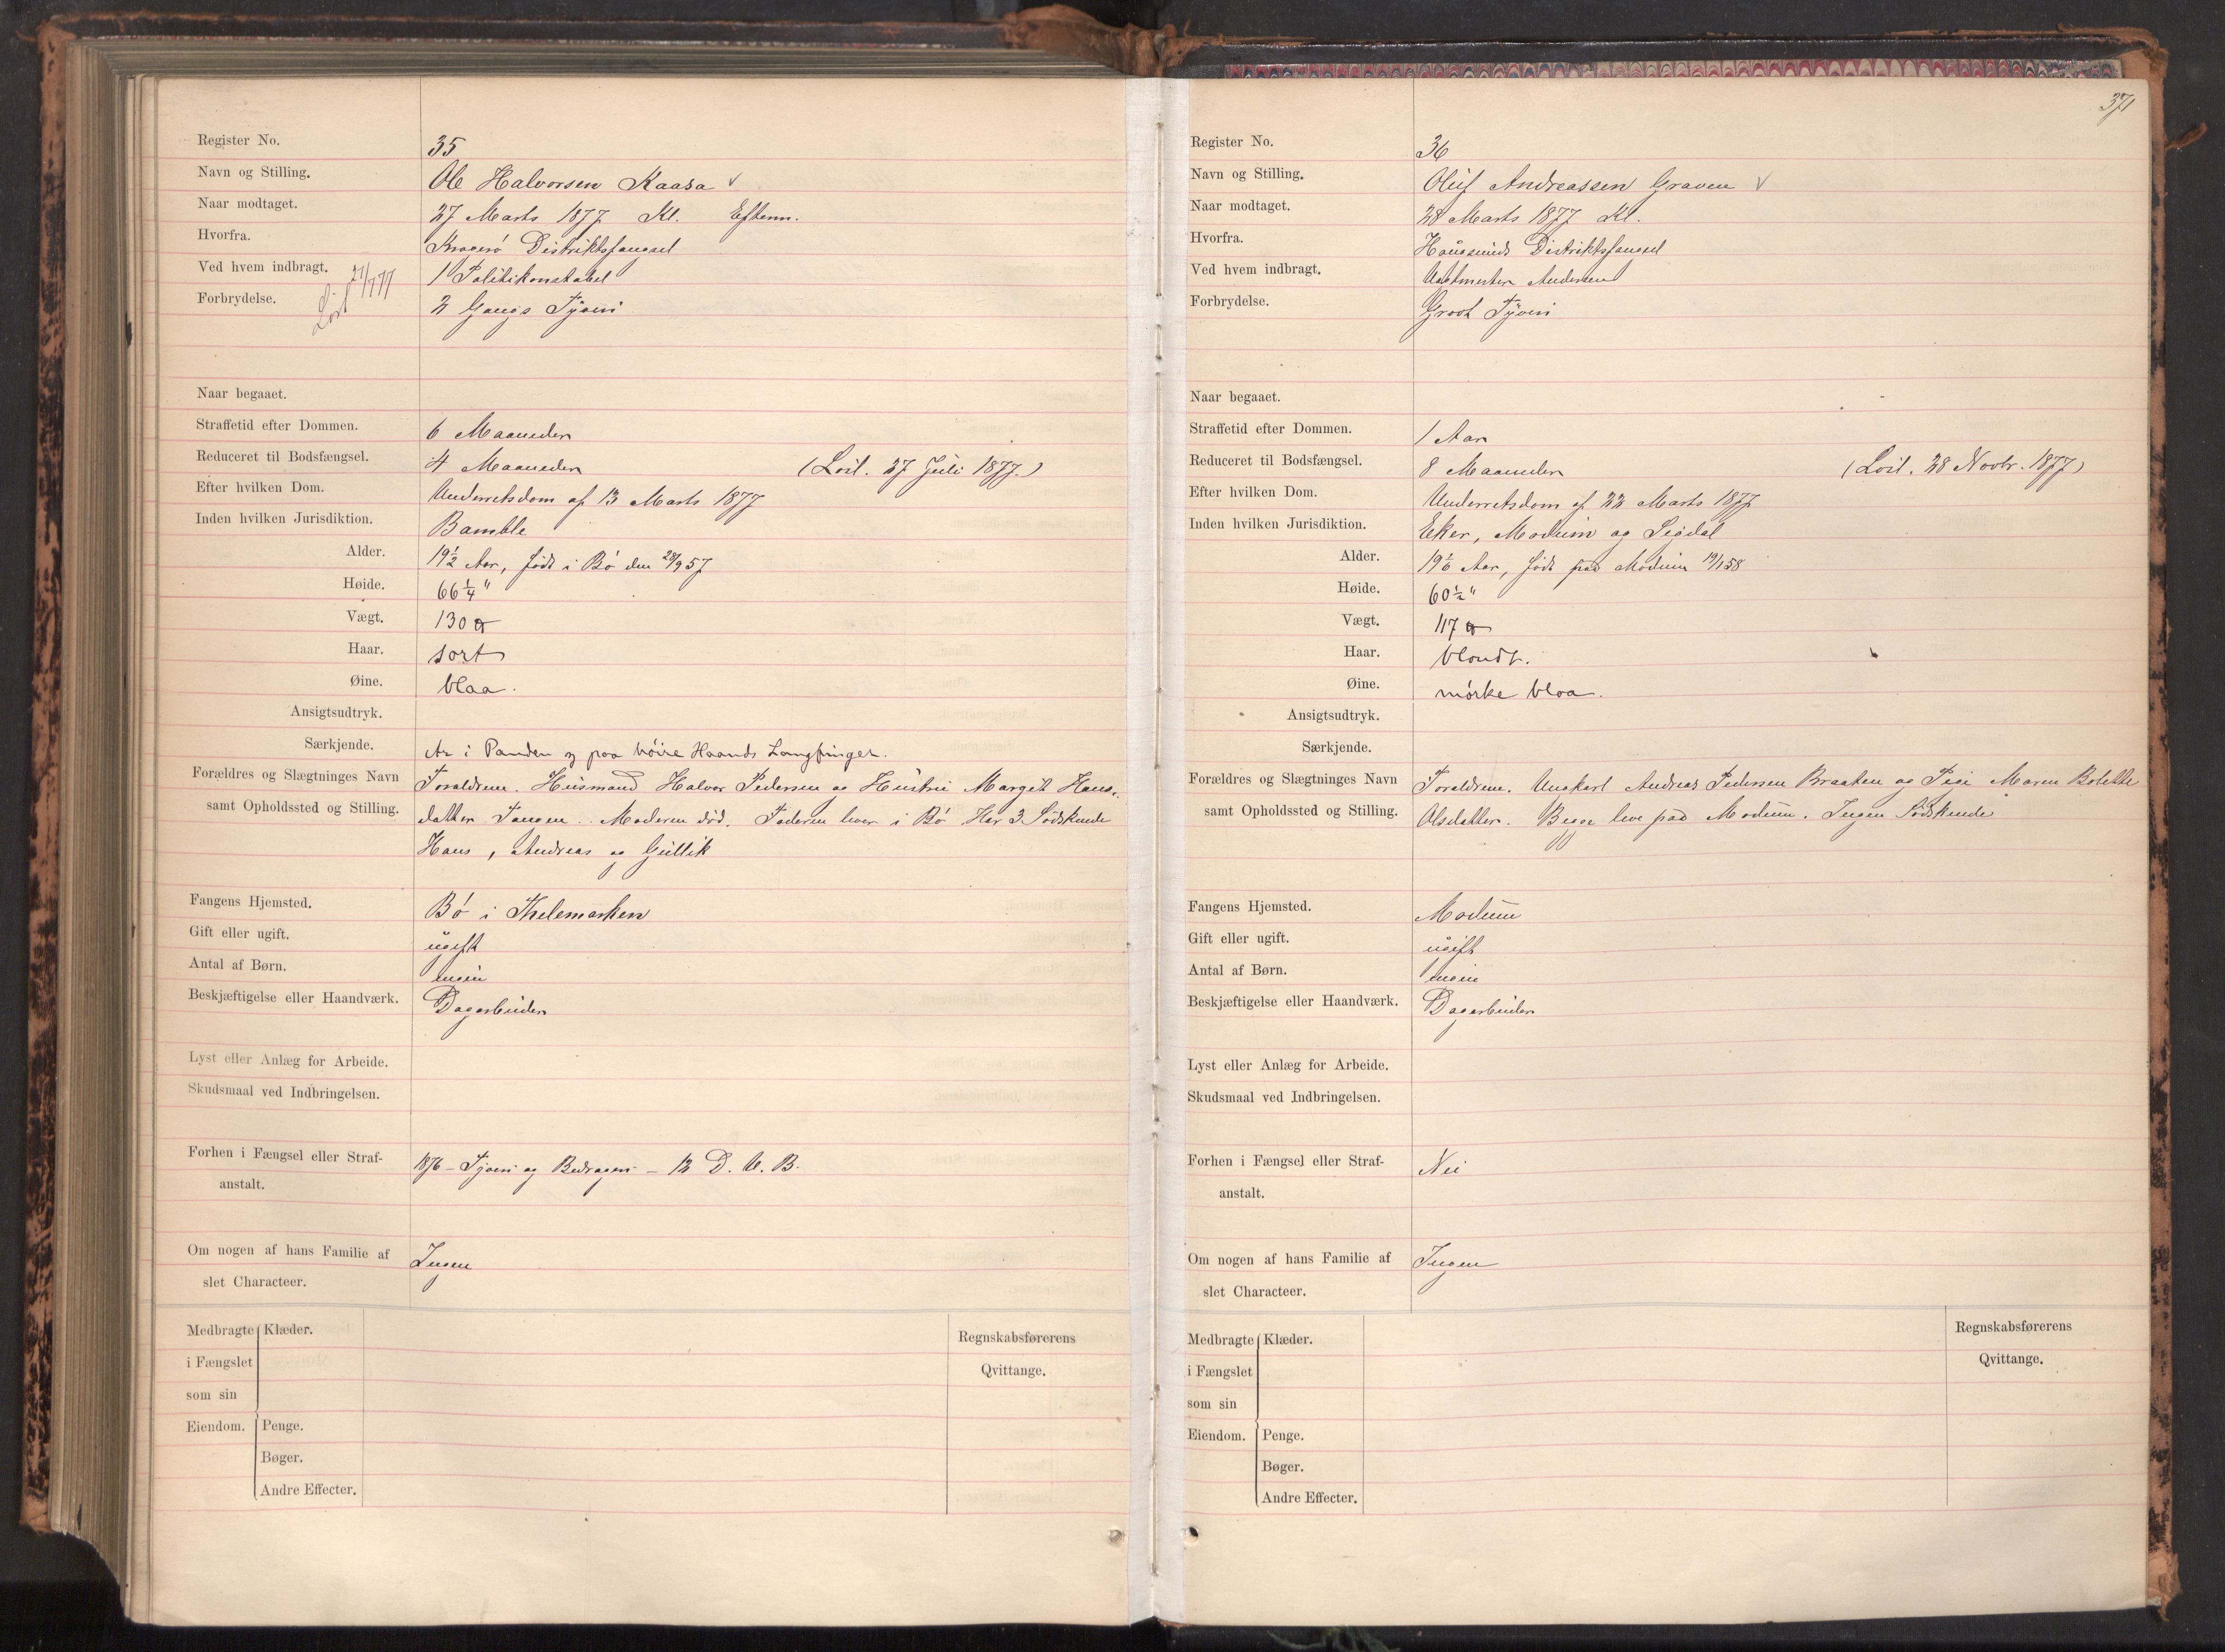 Register No. 35
Navn og Stilling. Ole Halvorsen Kaasa v
Naar modtaget. 27 Marts 1877 Kl. Efterm.
Hvorfra. Kragerö Distriktsfængsel
Ved hvem indbragt. 1 Politikonstabel
Löst 27/7 77
Forbrydelse. 2 Gangs Tyveri
Naar begaaet.
Straffetid efter Dommen. 6 Maaneder
Reduceret til Bodsfængsel. 4 Maaneder (Löil. 27 Juli 1877.)
Efter hvilken Dom. Underretsdom af 13 Marts 1877
Inden hvilken Jurisdiktion. Bamble
Alder. 19½ Aar, född i Bö den 28/9 57
Høide. 66¼"
Vægt. 130 ℔
Haar. sort
Øine. blaa.
Ansigtsudtryk.
Særkjende. Ar i Panden og paa höire Haands Langfinger.
Forældres og Slægtninges Navn Forældrene. Husmand Halvor Pedersen og Hustru Margit Hans-
samt Opholdssted og Stilling. datter Tangen. Moderen död. Faderen lever i Bö Har 3 Södskende
Hans, Andreas og Gullik
Fangens Hjemsted. Bö i Thelemarken
Gift eller ugift. ugift
Antal af Børn. ingen
Beskjæftigelse eller Haandværk. Dagarbeider
Lyst eller Anlæg for Arbeide.
Skudsmaal ved Indbringelsen.
Forhen i Fængsel eller Straf- 1876 - Tyveri og Bedrageri - 12 D. V. B.
anstalt.
Om nogen af hans Familie af Ingen
slet Characteer.
Medbragte Klæder. Regnskabsførerens
i Fængslet Qvittange.
som sin
Eiendom. Penge.
Bøger.
Andre Effecter.
371
Register No. 36
Navn og Stilling. Oluf Andreassen Graven v
Naar modtaget. 28 Marts 1877 Kl.
Hvorfra. Hougsunds Distriktsfængsel
Ved hvem indbragt. Vagtmester Andersen
Forbrydelse. Grovt Tyveri
Naar begaaet.
Straffetid efter Dommen. 1 Aar
Reduceret til Bodsfængsel. 8 Maaneder (Löil. 28 Novbr. 1877)
Efter hvilken Dom. Underretsdom af 22 Marts 1877
Inden hvilken Jurisdiktion. Eker, Modum og Sigdal
Alder. 19⅙ Aar, född paa Modum 19/1 58
Høide. 60½"
Vægt. 117 ℔
Haar. blondt.
Øine. mörke blaa.
Ansigtsudtryk.
Særkjende.
Forældres og Slægtninges Navn Forældrene. Ungkarl Andreas Pedersen Braaten og Pige Maren Bolette
samt Opholdssted og Stilling. Olsdatter. Begge leve paa Modum. Ingen Södskende
Fangens Hjemsted. Modum
Gift eller ugift. ugift
Antal af Børn. ingen
Beskjæftigelse eller Haandværk. Dagarbeider
Lyst eller Anlæg for Arbeide.
Skudsmaal ved Indbringelsen.
Forhen i Fængsel eller Straf- Nei
anstalt.
Om nogen af hans Familie af Ingen
slet Characteer.
Medbragte Klæder. Regnskabsførerens
i Fængslet Qvittange.
som sin
Eiendom. Penge.
Bøger.
Andre Effecter.